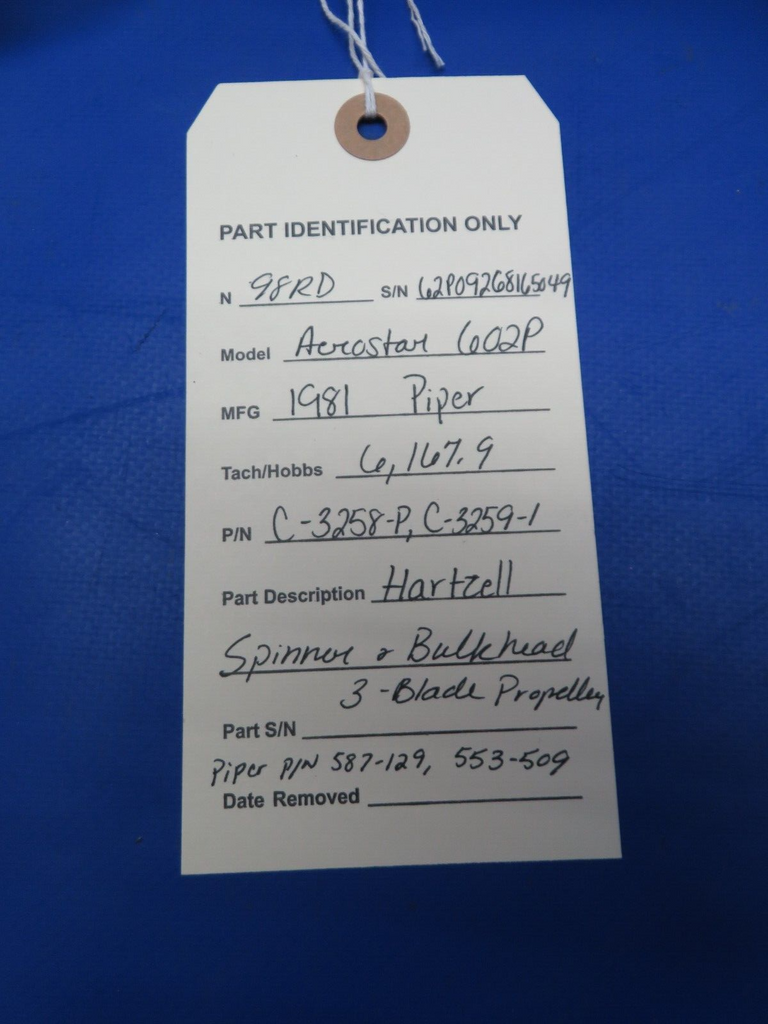 PART IDENTIFICATION ONLY
N 98RD S/N 62P09268165049
Model Aerostar 602P
MFG 1981 Piper
Tach/Hobbs 6,167.9
P/N C-3258-P, C-3259-1
Part Description Hartzell
Spinner & Bulkhead
3-Blade Propeller
Part S/N
Piper P/N 587-129, 553-509
Date Removed